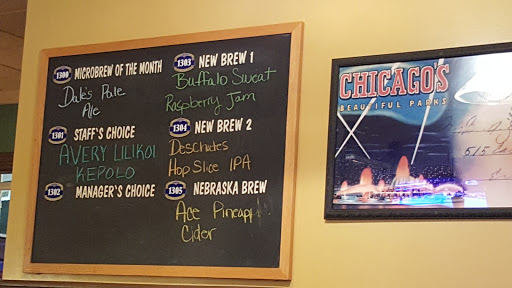 1300
MICROBREW OF THE MONTH
Dale's Pale
Ale
1301
STAFF'S CHOICE
AVERY LILIKOI
KEPOLO
1302
MANAGER'S CHOICE
1303
NEW BREW 1
Buffalo Sweat
Raspberry Jam
1304
NEW BREW 2
Deschutes
Hop Slice IPA
1305
NEBRASKA BREW
Ace Pineapple
Cider
CHICAGO'S
BEAUTIFUL PARKS